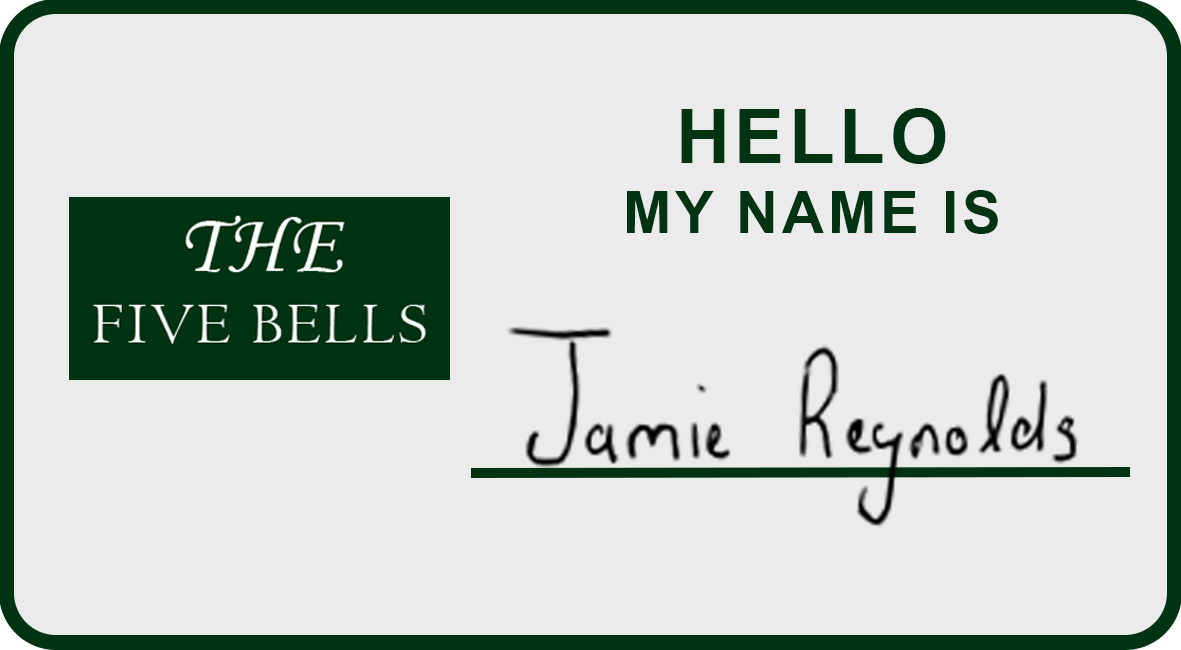 THE
FIVE BELLS
HELLO
MY NAME IS
Jamie Reynolds